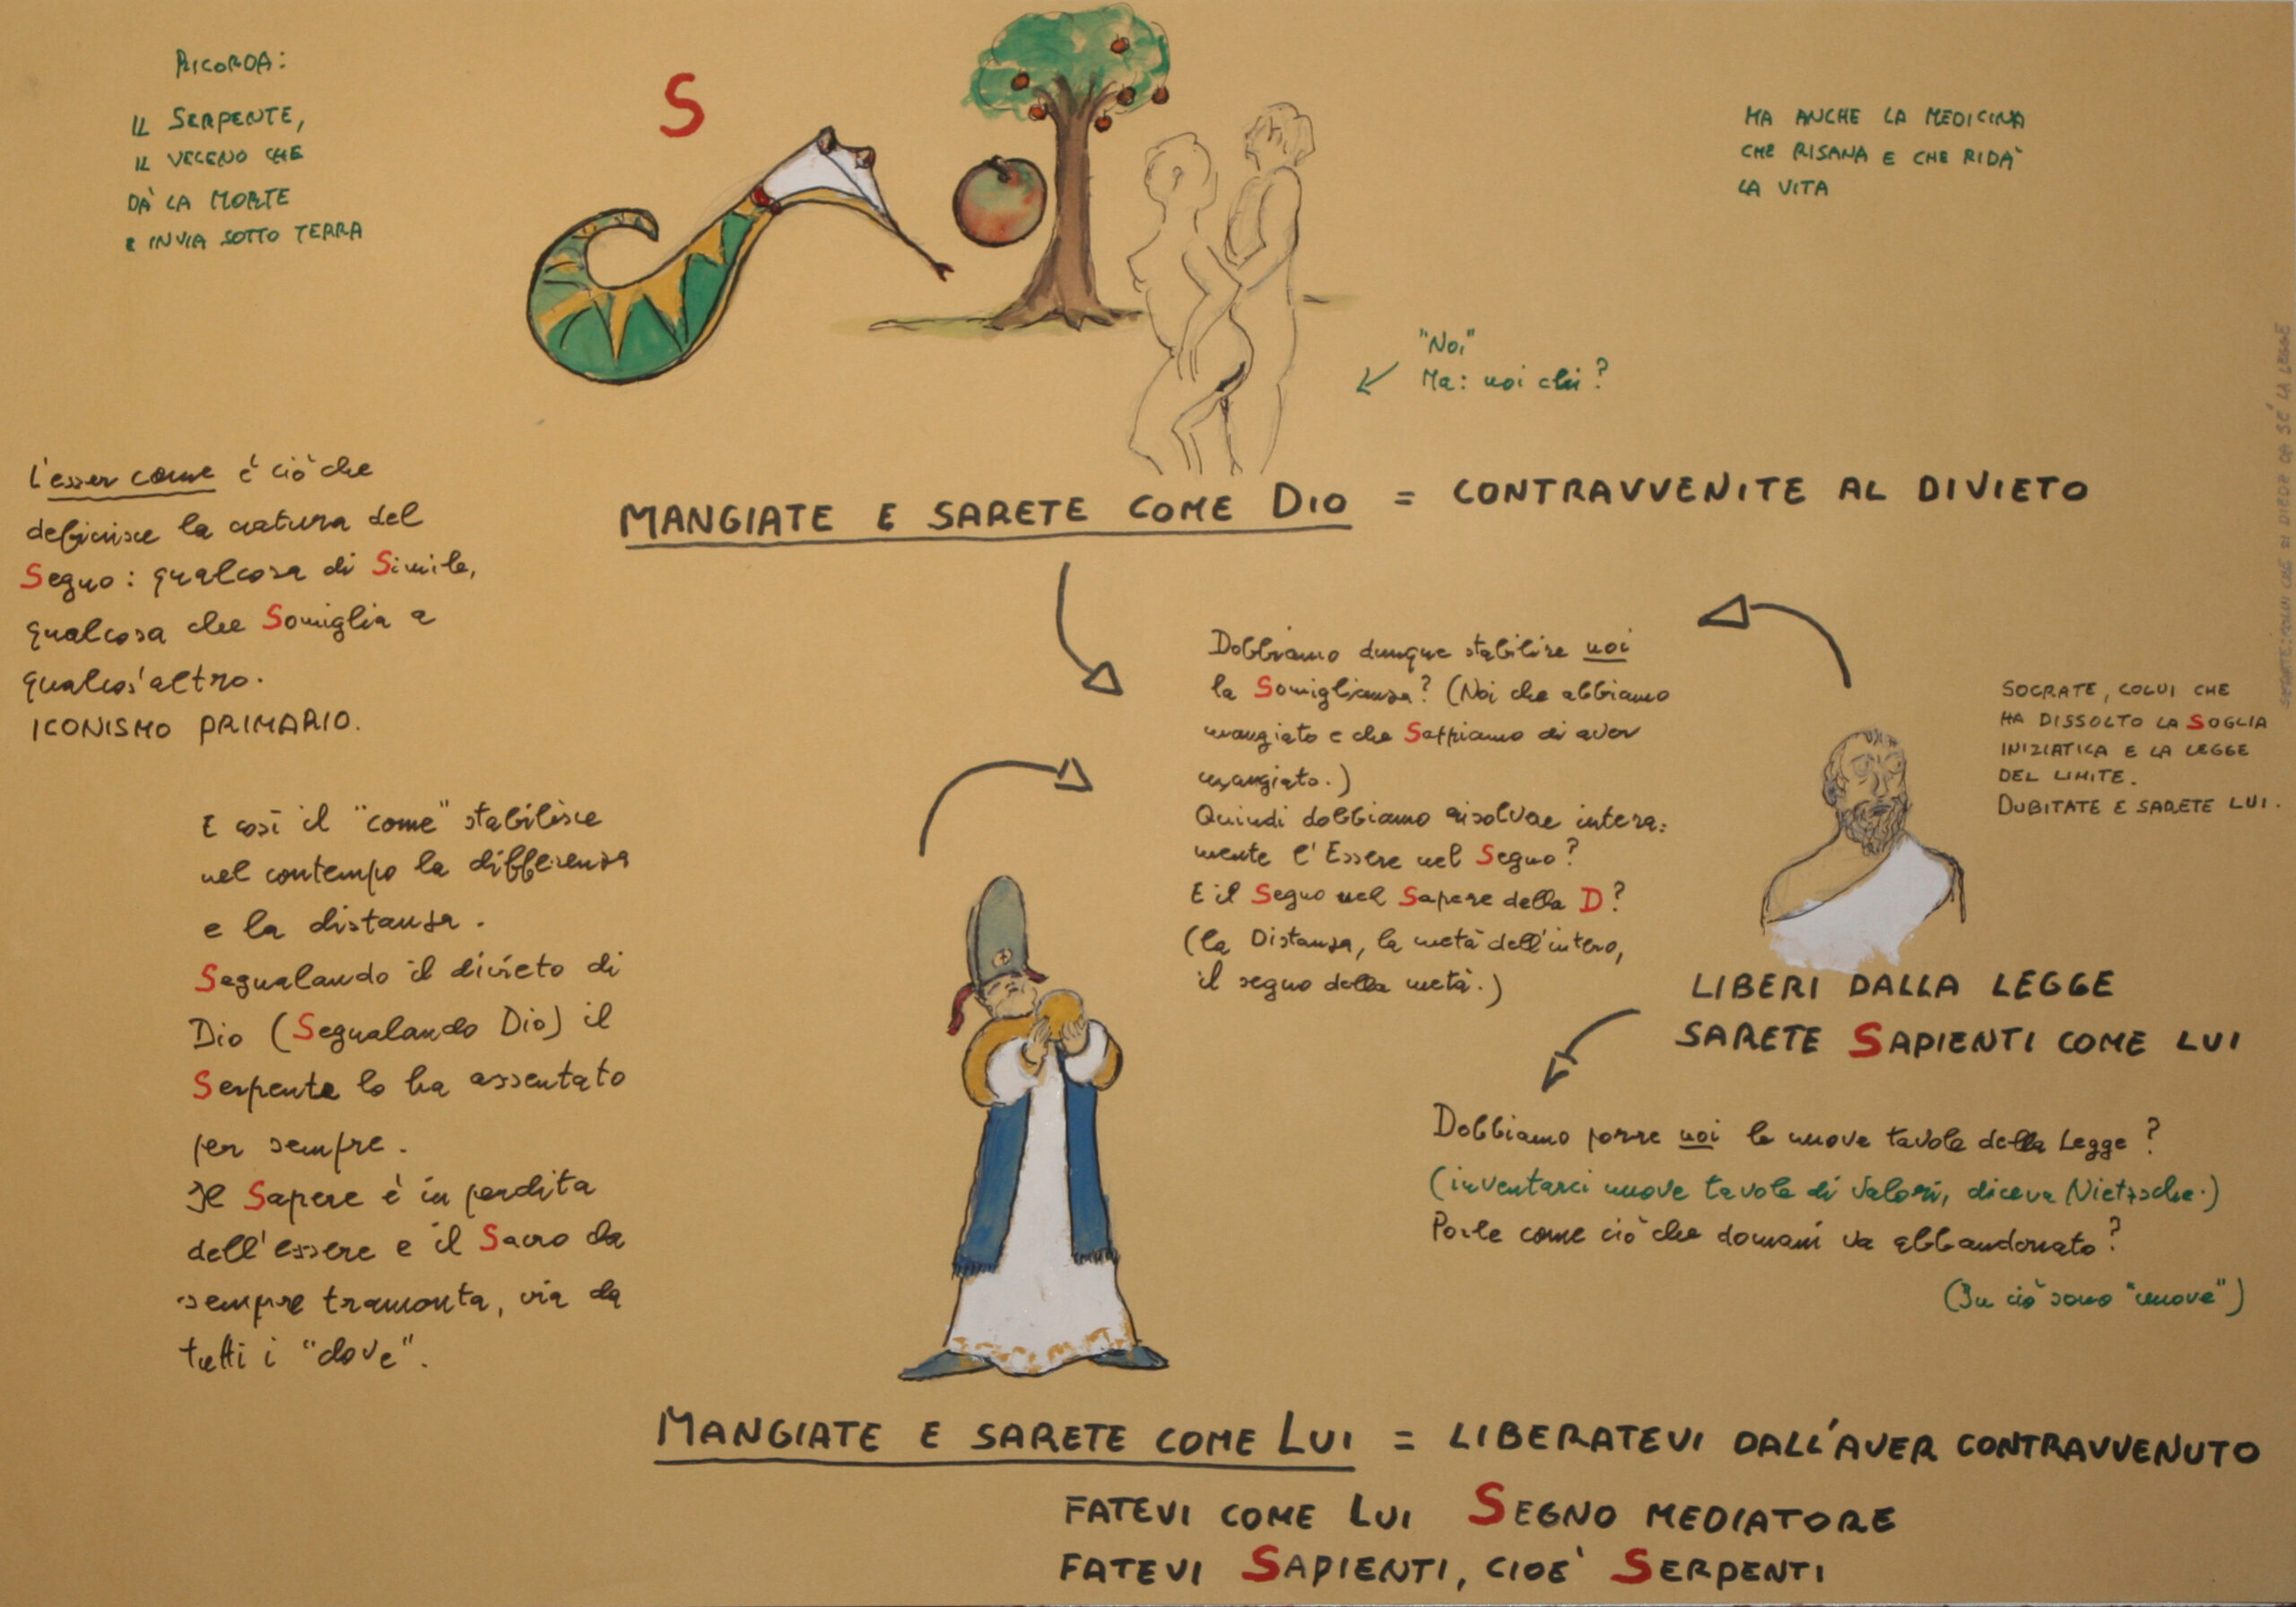 RICORDA:
IL SERPENTE,
IL VELENO CHE
DÀ LA MORTE
E INVIA SOTTO TERRA
S
MA ANCHE LA MEDICINA
CHE RISANA E CHE RIDÀ
LA VITA
"Noi"
Ma: noi chi?
L'esser come è ciò che
definisce la natura del
Segno: qualcosa di Simile,
qualcosa che Somiglia a
qualcos'altro.
ICONISMO PRIMARIO.
MANGIATE E SARETE COME DIO = CONTRAVVENITE AL DIVIETO
E così il "come" stabilisce
nel contempo la differenza
e la distanza.
Segnalando il divieto di
Dio (Segnalando Dio) il
Serpente lo ha assentato
per sempre.
Il Sapere è in perdita
dell'essere e il Sacro da
sempre tramonta, via da
tutti i "dove".
Dobbiamo dunque stabilire noi
la Somiglianza? (Noi che abbiamo
mangiato e che Sappiamo di aver
mangiato.)
Quindi dobbiamo risolvere intera-
mente l'Essere nel Segno?
E il Segno nel Sapere della D?
(la Distanza, la metà dell'intero,
il segno della metà.)
SOCRATE, COLUI CHE
HA DISSOLTO LA SOGLIA
INIZIATICA E LA LEGGE
DEL LIMITE.
DUBITATE E SARETE LUI.
COLUI CHE SI DIEDE DA SÉ LA LEGGE
LIBERI DALLA LEGGE
SARETE SAPIENTI COME LUI
Dobbiamo porre noi le nuove tavole della Legge?
(inventarci nuove tavole di valori, diceva Nietzsche.)
Porle come ciò che domani va abbandonato?
(In ciò sono "nuove")
MANGIATE E SARETE COME LUI = LIBERATEVI DALL'AVER CONTRAVVENUTO
FATEVI COME LUI SEGNO MEDIATORE
FATEVI SAPIENTI, CIOÈ SERPENTI